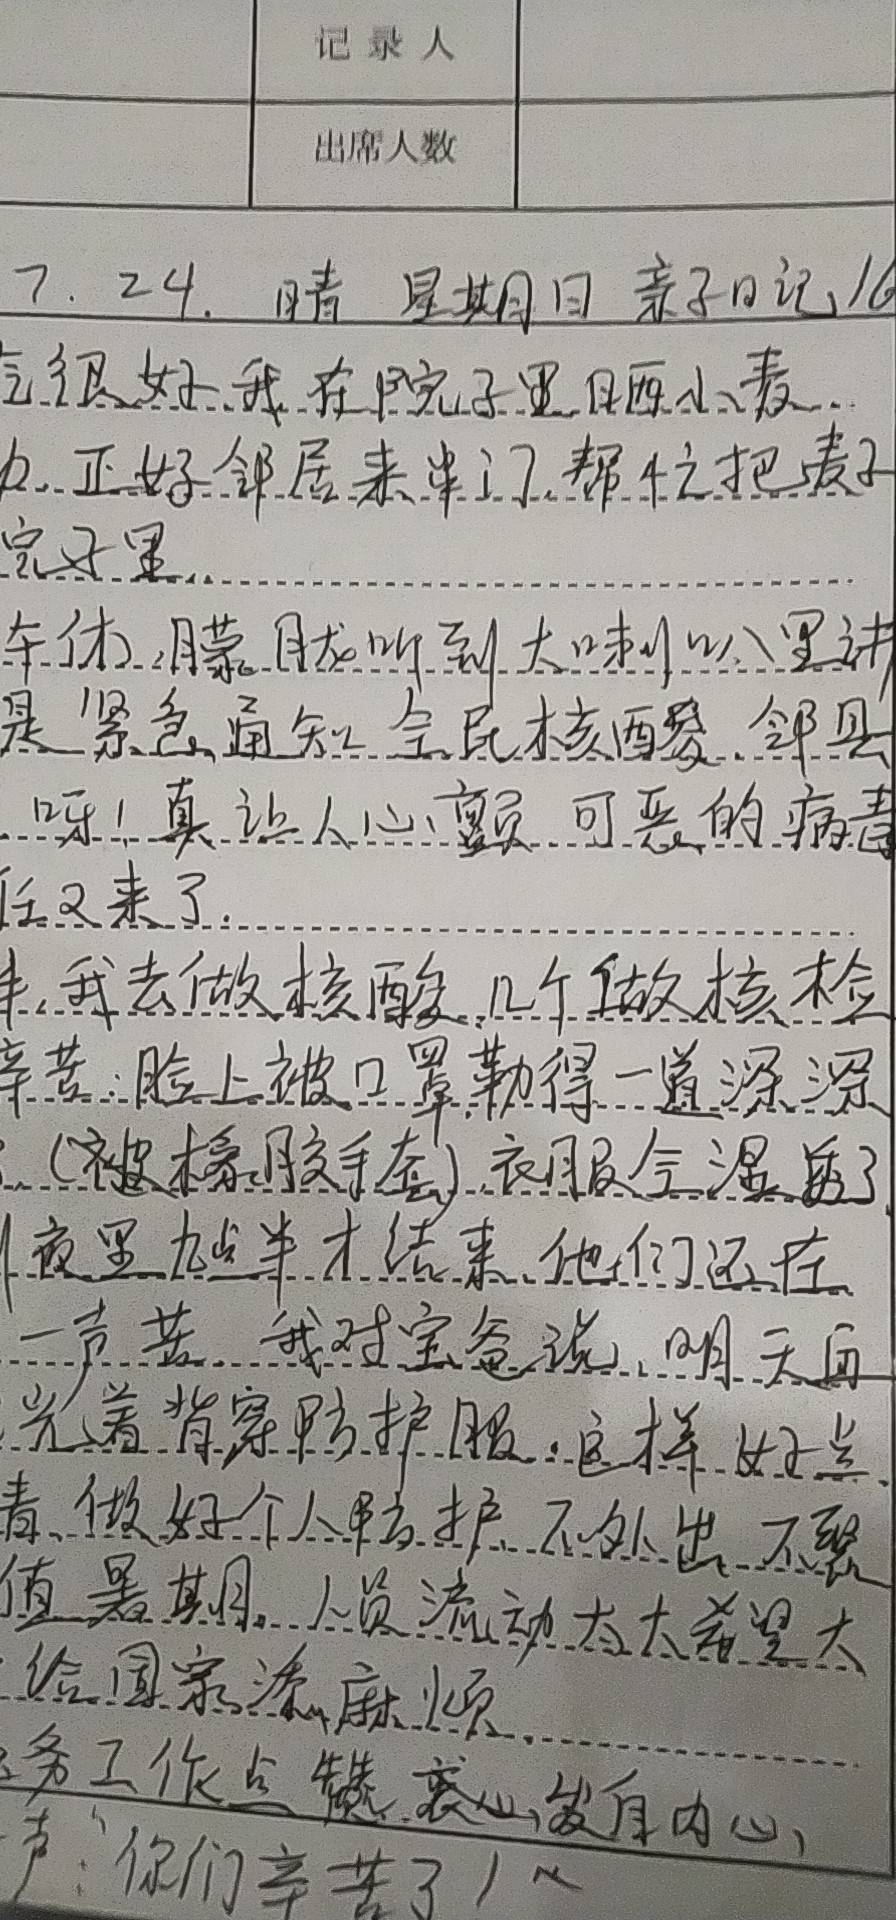 记录人
出席人数
7.24. 晴 星期日 亲子日记 16
气很好,我在院子里晒小麦.
力,正好邻居来串门,帮忙把麦子
院子里.
午休,朦胧听到大喇叭里讲
是紧急通知 全民核酸,邻县
呀!真让人心颤 可恶的病毒
又来了.
我去做核酸,几个做核检
辛苦,脸上被口罩勒得一道深深
(被橡胶手套)衣服全湿透了
夜里九点半才结束,他们还在
一声苦,我对宝爸说,明天再
光着背穿防护服,这样好点.
毒,做好个人防护,不外出,不聚
值暑期,人员流动太大希望大
给国家添麻烦.
务工作点赞,衷心,发自内心,
声:你们辛苦了!